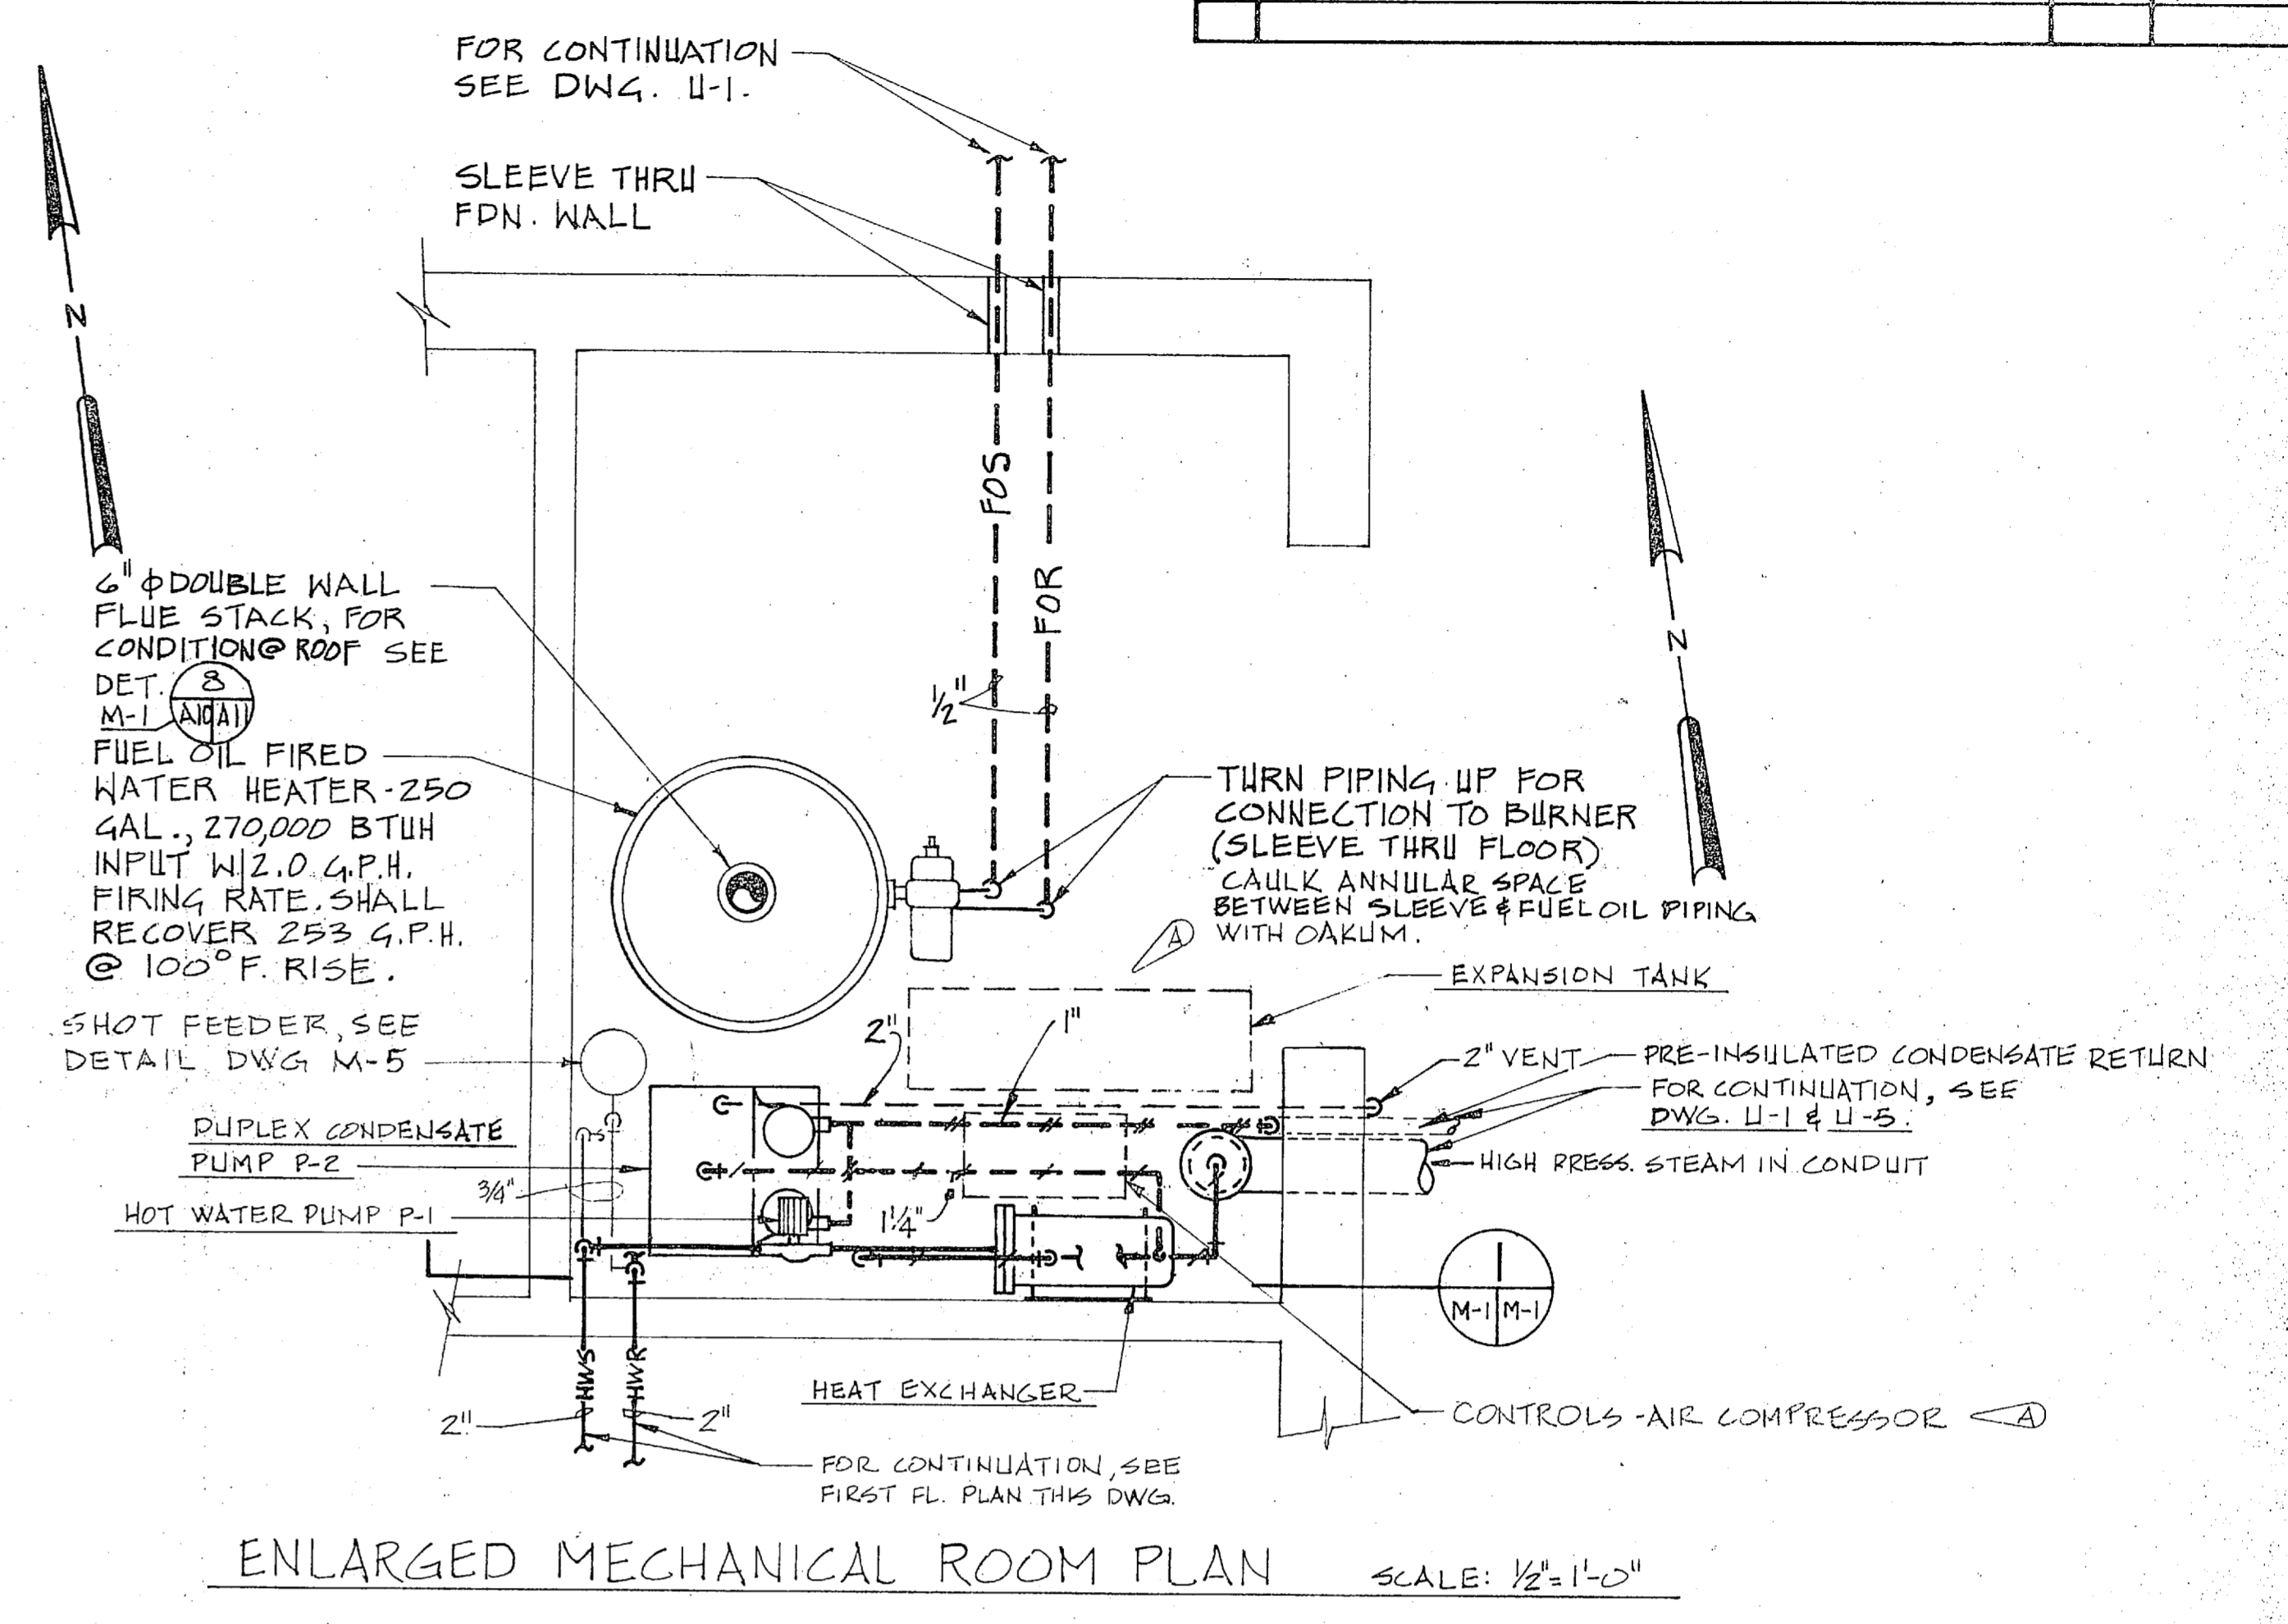 FOR CONTINUATION
SEE DWG. U-1.
SLEEVE THRU
FDN. WALL
N
N
FOS
FOR
1/2"
6" φ DOUBLE WALL
FLUE STACK, FOR
CONDITION @ ROOF SEE
DET. 8
M-1 A10 A11
FUEL OIL FIRED
WATER HEATER-250
GAL., 270,000 BTUH
INPUT W/2.0 G.P.H.
FIRING RATE. SHALL
RECOVER 253 G.P.H.
@ 100°F. RISE.
TURN PIPING UP FOR
CONNECTION TO BURNER
(SLEEVE THRU FLOOR)
CAULK ANNULAR SPACE
BETWEEN SLEEVE & FUEL OIL PIPING
A WITH OAKUM.
EXPANSION TANK
SHOT FEEDER, SEE
DETAIL DWG M-5
2"
1"
2" VENT
PRE-INSULATED CONDENSATE RETURN
FOR CONTINUATION, SEE
DWG. U-1 & U-5.
DUPLEX CONDENSATE
PUMP P-2
HIGH PRESS. STEAM IN CONDUIT
3/4"
HOT WATER PUMP P-1
1 1/4"
1
M-1 M-1
HWS
HWR
HEAT EXCHANGER
2"
2"
CONTROLS-AIR COMPRESSOR A
FOR CONTINUATION, SEE
FIRST FL. PLAN THIS DWG.
ENLARGED MECHANICAL ROOM PLAN SCALE: 1/2"=1'-0"